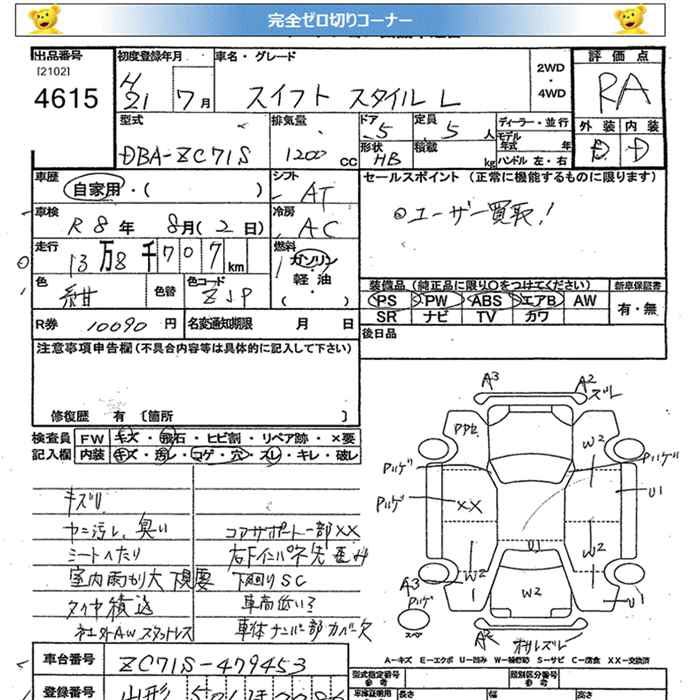 完全ゼロ切りコーナー
出品番号 初度登録年月 車名・グレード 2WD ・ 4WD 評価点
[2102]
4615 H21 7月 スイフト スタイル L RA
型式 排気量 ドア 5 定員 5 人 ディーラー・並行 外装 内装
モデル年式 年
DBA-ZC71S 1200 cc 形状 HB 積載 kg ハンドル 左・右 D D
車歴 シフト セールスポイント (正常に機能するものに限ります)
自家用・( ) AT
車検 冷房 ◎ユーザー買取!
R8年 8月(2日) AC
走行 燃料
13万8千707km ガソリン
軽油
( )
色 色替 色コード 装備品 (純正品に限り〇をつけてください) 新車保証書
紺 ZJP PS PW ABS エアB AW 有・無
SR ナビ TV カワ
R券 10090円 名変通知期限 月 日 後日品
注意事項申告欄(不具合内容等は具体的に記入して下さい)
修復歴 有 〔箇所 〕
検査員記入欄 FW キズ・飛石・ヒビ割・リペア跡・×要
内装 キズ・汚レ・コゲ・穴・スレ・キレ・破レ
キズリ
ヤニ汚レ、臭い コアサポート一部XX
シートヘたり 右Fインパネ先歪み
室内雨もり大 下現要 下廻りSC
タイヤ積込 車高低い?
社外AWスタッドレス 車体ナンバー部カバー欠
A3 A2 ズレ
Pハゲ W2 Pハゲ
Pハゲ XX U1
U1
W2 W2
A3 Pハゲ W2 U1
スペア A2
A-キズ E-エクボ U-凹み W-補修跡 S-サビ C-腐食 XX-交換済
車台番号 ZC71S-479453
型式指定番号 類別区分番号
参考 参考
登録番号 山形 長さ 幅 高さ